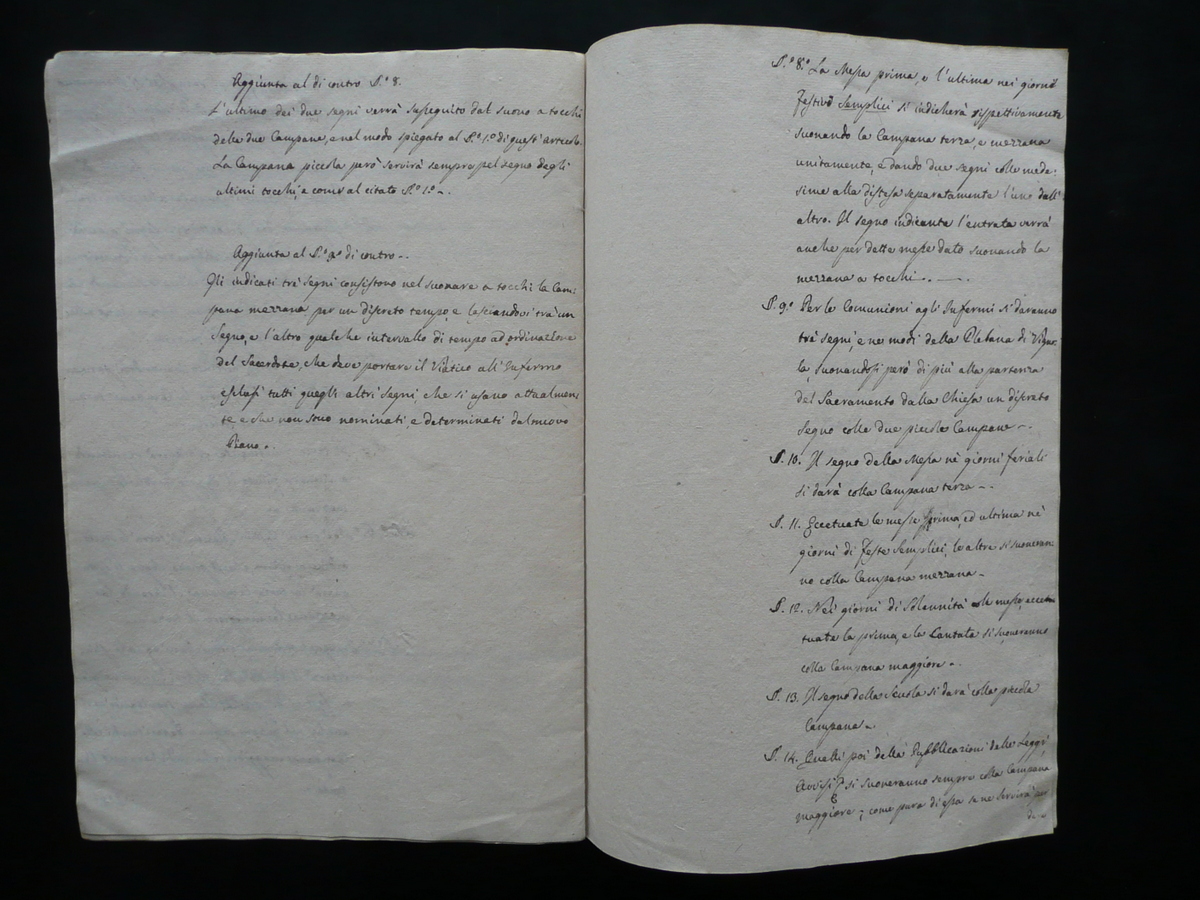 Aggiunta al di contro P.º 8.
L'ultimo dei due segni verrà susseguito dal suono a tocchi
delle due Campane, e nel modo spiegato al P.º 1.º di quest'articolo.
La Campana piccola però servirà sempre pel segno degli
ultimi tocchi, e come al citato P.º 1.º -.
Aggiunta al P.º 9.º di contro -.
Gli indicati trè segni consistono nel suonare a tocchi la Cam:
pana mezzana per un discreto tempo, e lasciandovi trà un
Segno, e l'altro qualche intervallo di tempo ad ordinazione
del Sacerdote, che deve portare il Viatico all'Infermo
esclusi tutti quegli altri Segni, che si usano attualmen:
te, e che non sono nominati, e determinati dal nuovo
Piano -.
P.º 8.º La Messa prima, e l'ultima nei giorni
festivi Semplici si indicherà rispettivamente
suonando la Campana terza, e mezzana
unitamente, e dando due segni colle mede:
sime alla distesa separatamente l'uno dall'
altro. Il segno indicante l'entrata verrà
anche per dette messe dato suonando la
mezzana a tocchi. -.
P. 9.º Per le Comunioni agli Infermi si daranno
trè segni, e ne modi della Plebana di
la, suonandosi però di più alla partenza
del Sacramento dalla Chiesa un discreto
segno colle due piccole Campane -.
P. 10. Il segno della Messa nè giorni feriali
si darà colla Campana terza -.
P. 11. Eccetuate le messe prima, ed ultima nè
giorni di Feste Semplici, le altre si suoneran:
no colla Campana mezzana -
P. 12. Nei giorni di Solennità le messe, eccet
tuate la prima, e la Cantata si suoneranno
colla Campana maggiore -.
P. 13. Il segno della Scuola si darà colla piccola
Campana -.
P. 14. Quelli poi della Pubblicazioni delle Leggi
Avvisi si suoneranno sempre colla Campana
maggiore; come pure di essa se ne servirà per